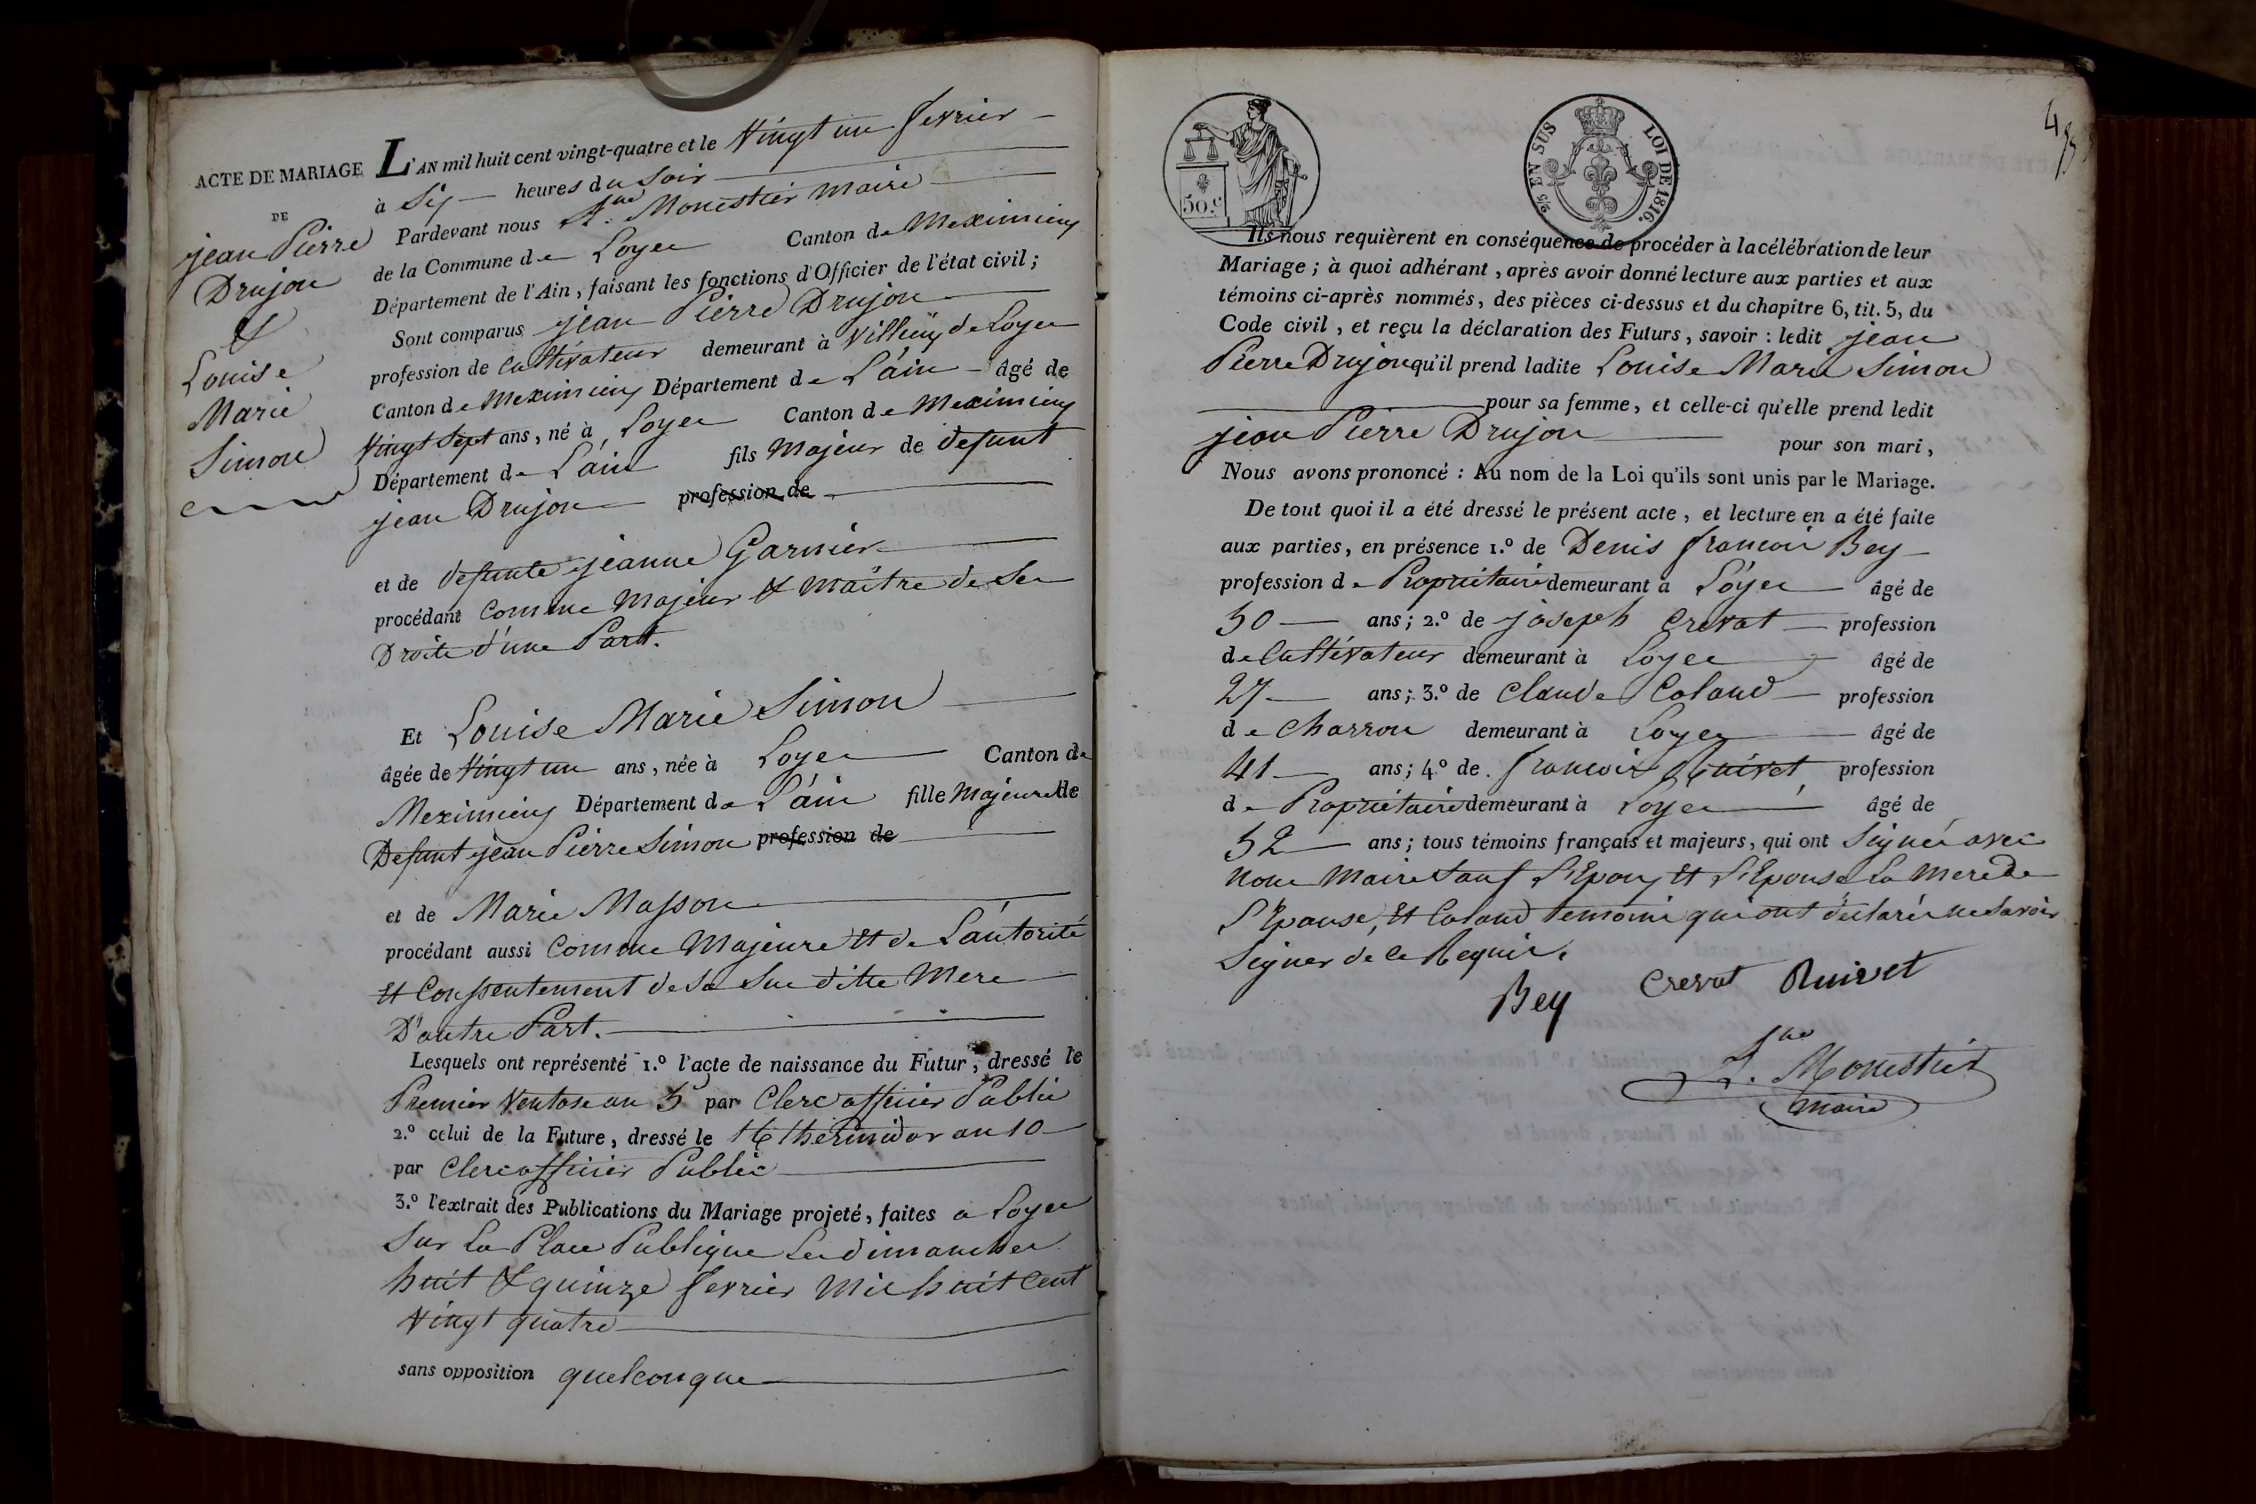 ACTE DE MARIAGE
DE
jean Pierre
Drujon
&
Louise
Marie
Simon
L'AN mil huit cent vingt-quatre et le Vingt un fevrier
à Six heures du Soir
Pardevant nous Monestier Maire
de la Commune de Loyes Canton de Meximieux
Département de l'Ain, faisant les fonctions d'Officier de l'état civil;
Sont comparus jean Pierre Drujon
profession de Cultivateur demeurant à Villieux de Loyes
Canton de Meximieux Département de L'ain âgé de
Vingt Sept ans, né à Loyes Canton de Meximieux
Département de L'ain fils Majeur de defunt
jean Drujon profession de
et de defunte jeanne Garnier
procédant Comme Majeur & Maître de Ses
Droits d'une Part.
Et Louise Marie Simon
âgée de Vingt un ans, née à Loyes Canton de
Meximieux Département de L'ain fille Majeure de
Defunt jean Pierre Simon profession de
et de Marie Masson
procédant aussi Comme Majeure Et de L'autorité
Et Consentement de Sa Sus ditte Mere
D'autre Part.
Lesquels ont représenté 1.º l'acte de naissance du Futur, dressé le
Premier Ventose an 5 par Clerc officier Public
2.º celui de la Future, dressé le 16 thermidor an 10
par Clerc officier Public
3.º l'extrait des Publications du Mariage projeté, faites a Loyes
Sur La Place Publique Les dimanches
huit & quinze fevrier Mil huit Cent
Vingt quatre
sans opposition quelconque
4
50.c
5/6 EN SUS LOI DE 1816.
Ils nous requièrent en conséquence de procéder à la célébration de leur
Mariage; à quoi adhérant, après avoir donné lecture aux parties et aux
témoins ci-après nommés, des pièces ci-dessus et du chapitre 6, tit. 5, du
Code civil, et reçu la déclaration des Futurs, savoir: ledit jean
Pierre Drujon qu'il prend ladite Louise Marie Simon
pour sa femme, et celle-ci qu'elle prend ledit
jean Pierre Drujon pour son mari,
Nous avons prononcé: Au nom de la Loi qu'ils sont unis par le Mariage.
De tout quoi il a été dressé le présent acte, et lecture en a été faite
aux parties, en présence 1.º de Denis francois Bey
profession de Propriétaire demeurant à Loyes âgé de
50 ans; 2.º de joseph Crevat profession
de Cultivateur demeurant à Loyes âgé de
27 ans; 3.º de Claude Coland profession
de Charron demeurant à Loyes âgé de
41 ans; 4.º de francois Ruivet profession
de Propriétaire demeurant à Loyes âgé de
52 ans; tous témoins français et majeurs, qui ont Signés avec
Nous Maire Sauf L'Epoux Et L'Epouse La Mere de
L'Epouse, Et Coland temoins qui ont déclarés ne Savoir
Signer de ce Requis.
Bey Crevat Ruivet
Monestier
Maire